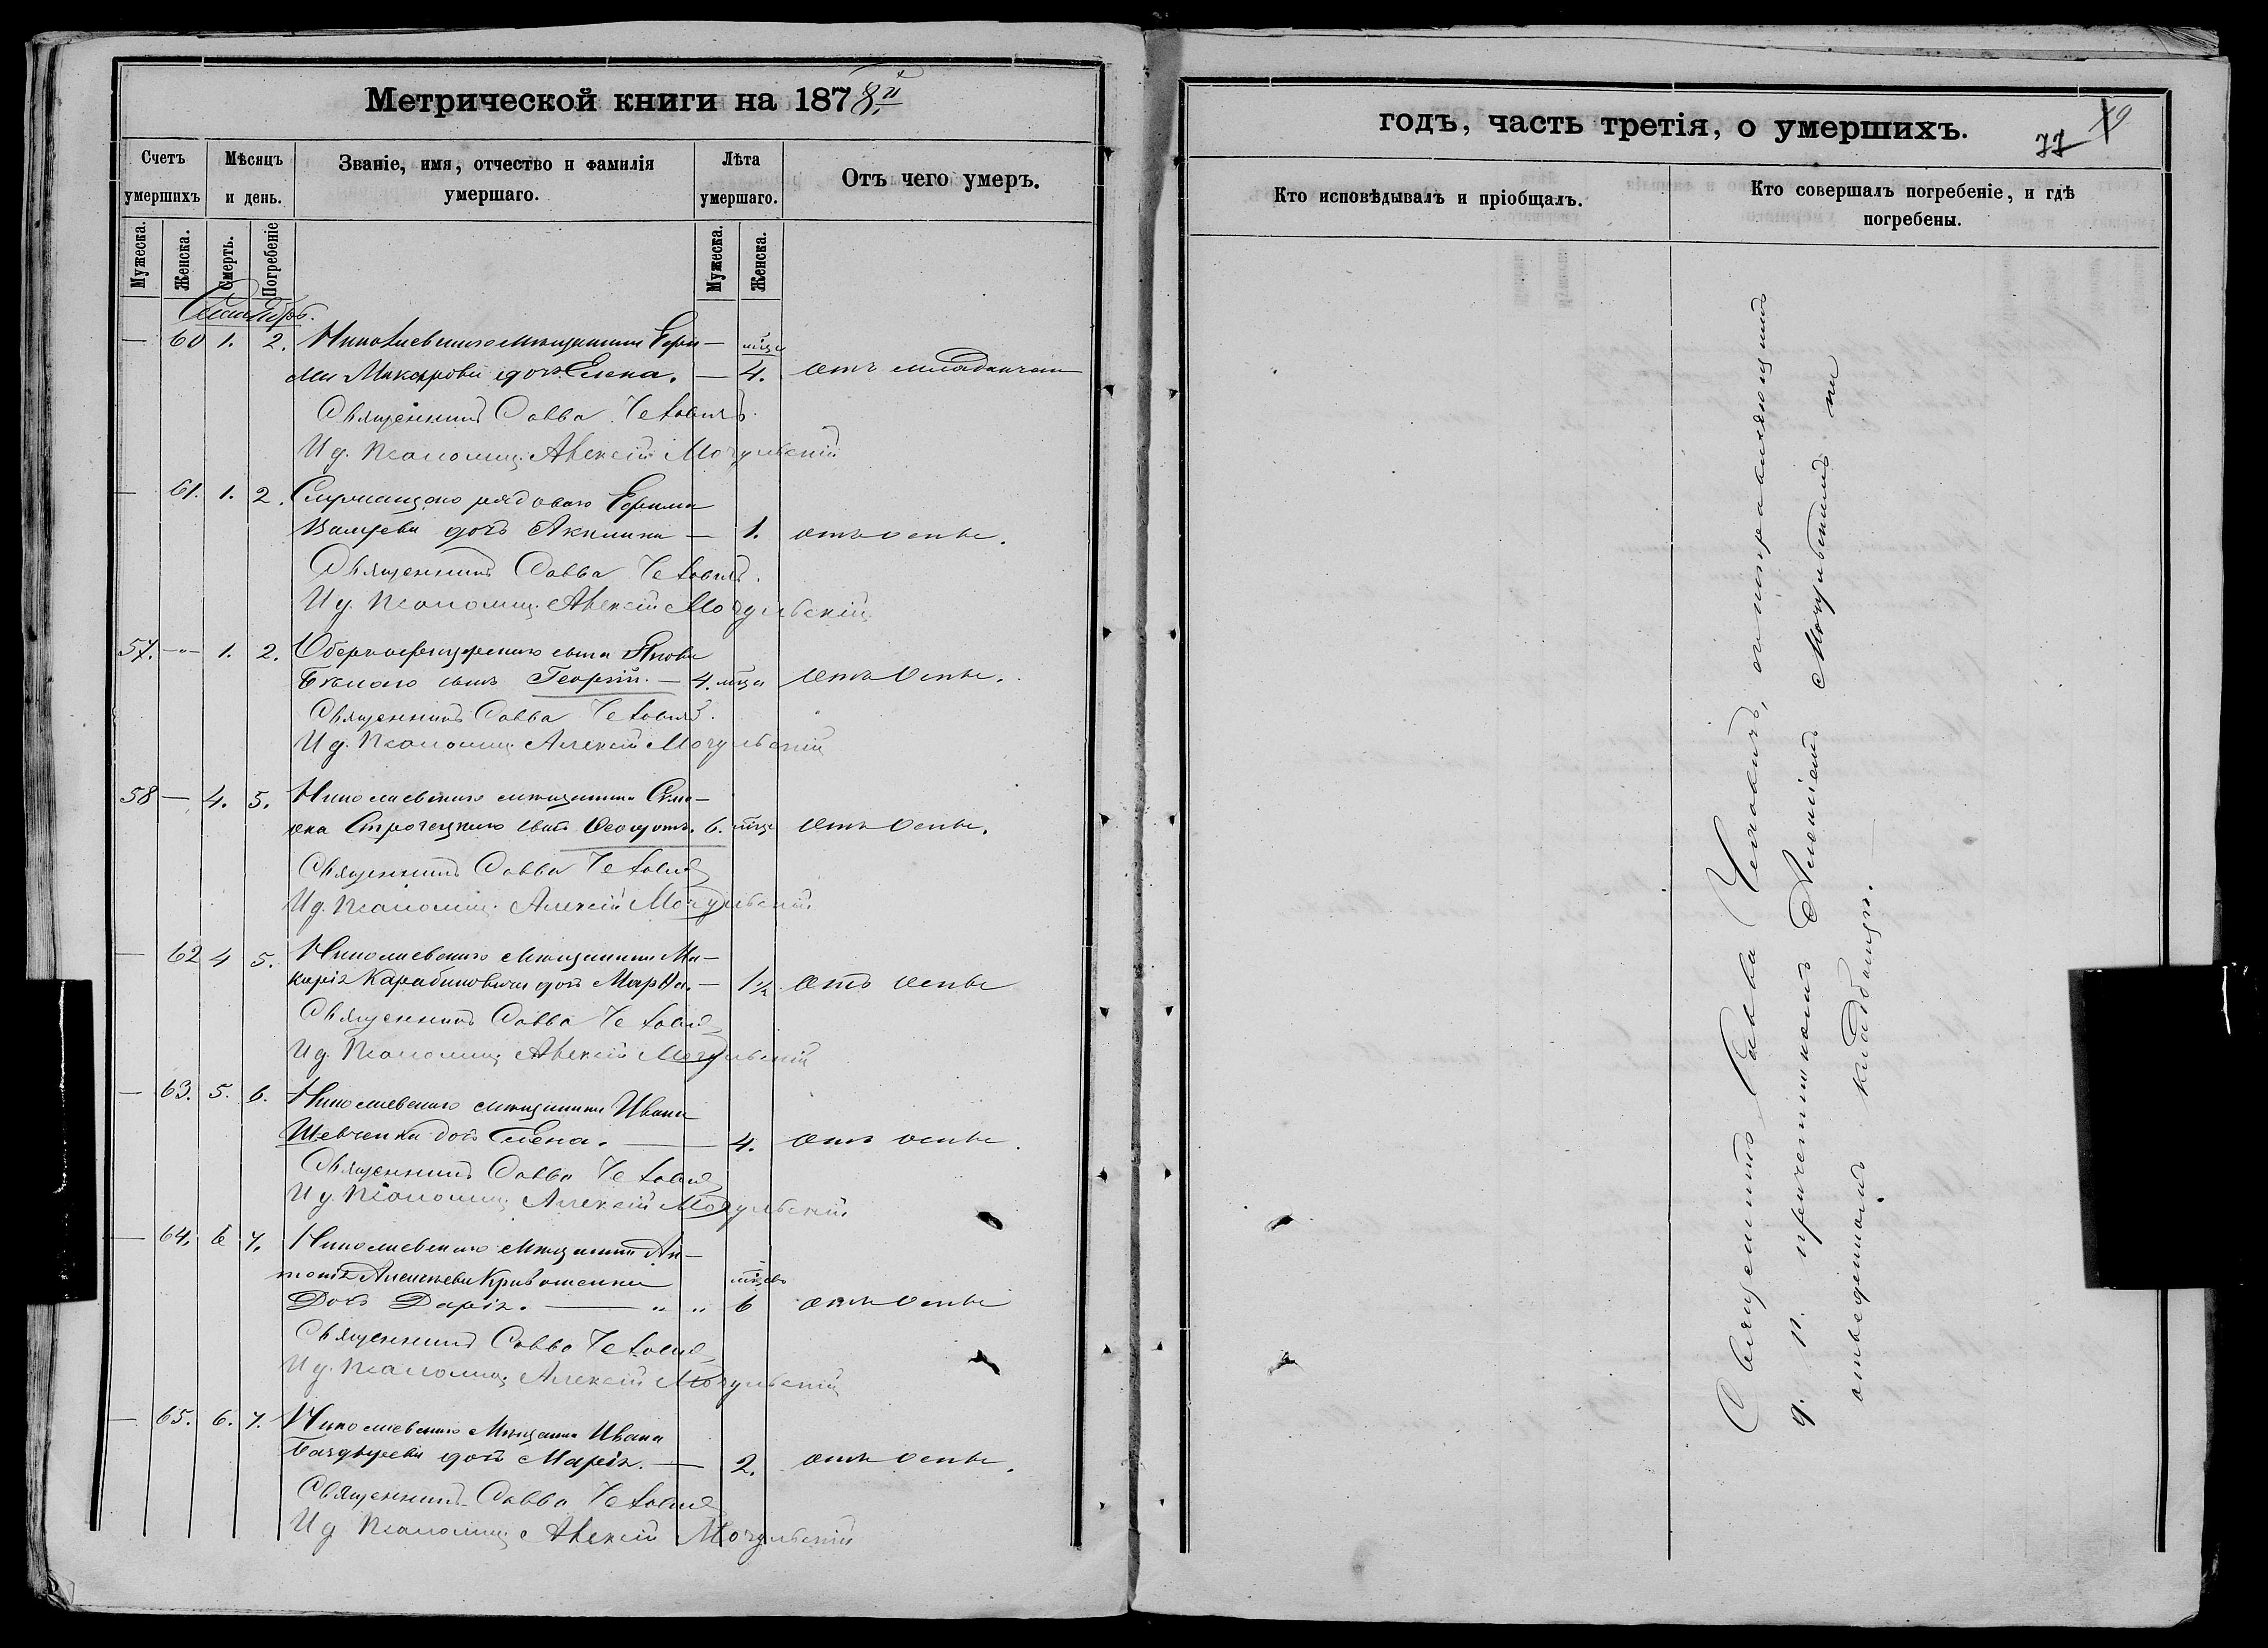 Метрической книги на 1878й
Счетъ умершихъ
Мѣсяцъ и день.
Званіе, имя, отчество и фамилія умершаго.
Лѣта умершаго.
Отъ чего умеръ.
Мужеска. Женска. Смерть. Погребеніе Мужеска. Женска.
— 60 1. 2. Николаевскаго мѣщанина —
дочь Елена. — 4. отъ
Священникъ Савва
И д. Псаломщ. Алексій Мочульскій
— 61. 1. 2. рядоваго Ефима
дочь Акилина — 1. отъ оспы.
Священникъ Савва
И д. Псаломщ. Алексій Мочульскій
57. —"— 1. 2. сына Якова
сынъ Георгій. — 4. мца отъ оспы.
Священникъ Савва
И д. Псаломщ. Алексій Мочульскій
58 — 4. 5. Николаевскаго мѣщанина
сынъ 6. мце отъ оспы.
Священникъ Савва
И д. Псаломщ. Алексій Мочульскій
— 62 4 5. Николаевскаго мѣщанина Ма-
карія Карабиновича дочь Марѳа. — 1½ отъ оспы
Священникъ Савва
И д. Псаломщ. Алексій Мочульскій
— 63. 5. 6. Николаевскаго мѣщанина Ивана
Шевченка дочь Елена. — 4. отъ оспы.
Священникъ Савва
И д. Псаломщ. Алексій Мочульскій
— 64. 6 7. Николаевскаго мѣщанина Ан-
тонія Алексѣева мцевъ
Дочь Дарія. — " " 6 отъ оспы
Священникъ Савва
И д. Псаломщ. Алексій Мочульскій
— 65. 6. 7. Николаевскаго мѣщанина Ивана
дочь Марія. — 2. отъ оспы.
Священникъ Савва
И д. Псаломщ. Алексій Мочульскій
годъ, часть третія, о умершихъ.
77
Кто исповѣдывалъ и пріобщалъ.
Кто совершалъ погребеніе, и гдѣ погребены.
Священникъ Савва съ исправляющимъ
д. п. причетникомъ Алексіемъ Мочульскимъ на
отведенномъ кладбищѣ.